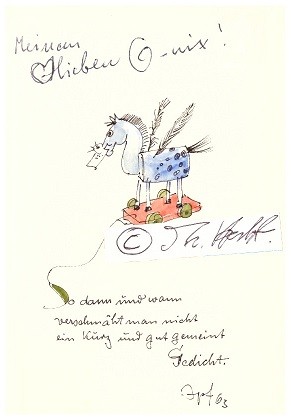 Meinem
lieben O-nix!
© Th.
So dann und wann
verschmäht man nicht
ein kurz und gut gemeint
Gedicht.
63